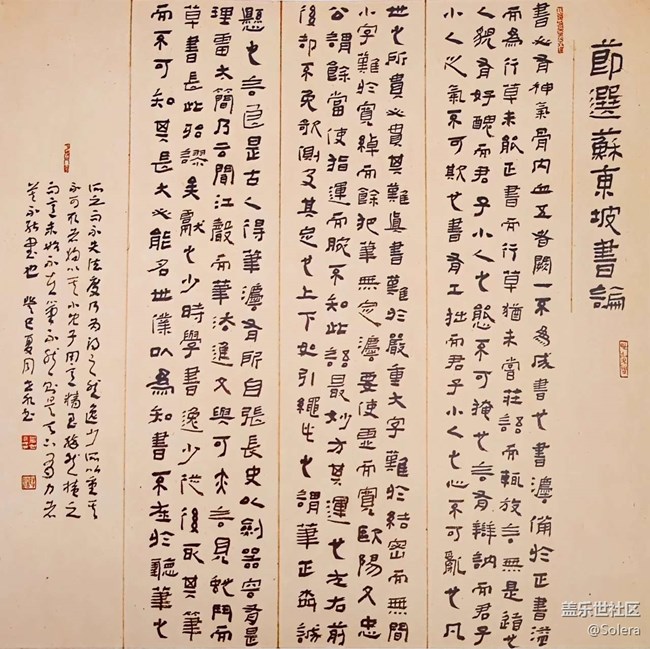 節選蘇東坡書論
書必有神氣骨肉血五者闕一不為成書也書灋備於正書溢
而為行草未能正書而行草猶未嘗莊語而輒放言無是道也
人貌有好醜而君子小人之態不可掩也言有辯訥而君子
小人之氣不可欺也書有工拙而君子小人之心不可亂也凡
世之所貴必貴其難真書難於嚴重大字難於結密而無間
小字難於寬綽而餘把筆無定灋要使虛而寬歐陽文忠
公謂餘當使指運而腕不知此語最妙方其運之左右前
後卻不免欹側及其定之上下如引繩此之謂筆正柳誠
懸之言良是古人得筆灋有所自張長史以劍器容有是
理雷太簡乃云聞江聲而筆法進文與可亦言見蛇鬥而
草書長此殆謬矣獻之少時學書逸少從後取其筆
而不可知其長大必能名世僕以為知書不在於聽筆之
所之而不失法度乃為得之然逸少所以重其
不可取者獨以其小兒子用意精至猝然掩之
而意未始不在筆不然則是天下有力者
莫不能書也 癸巳夏月
盖乐世社区
@Solera